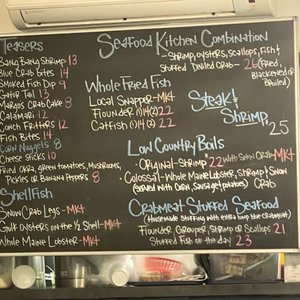 Teasers
Bang Bang Shrimp 13
Blue Crab Bites 14
Smoked Fish Dip 9
Gator Tail 13
Margos Crab Cakes 8
Calamari 12
Conch Fritters 12
Fish Bites 14
Corn Nuggets 8
Cheese Sticks 10
Fried Okra, green tomatoes, mushrooms,
Pickles or Banana Peppers 8
Shellfish
Snow Crab Legs - MKt
Gulf Oysters on the 1/2 Shell - MKt
Whole Maine Lobster - MKt
Seafood Kitchen Combination
Shrimp, oysters, scallops, Fish &
Stuffed Deviled Crab - 26 (Fried,
Blackened or
Broiled)
Whole Fried Fish
Local Snapper - MKt
Flounder (1) 14 (2) 22
Catfish (1) 14 (2) 22
Steak &
Shrimp
25
Low Country Boils
Original - Shrimp 22 With Snow Crab MKt
Colossal - Whole Maine Lobster, Shrimp & Snow
Crab
(served with corn, sausage & potatoes)
Crabmeat Stuffed Seafood
(Housemade Stuffing with extra lump crabmeat)
Flounder, Grouper, Shrimp or Scallops 21
Stuffed Fish of the day 23